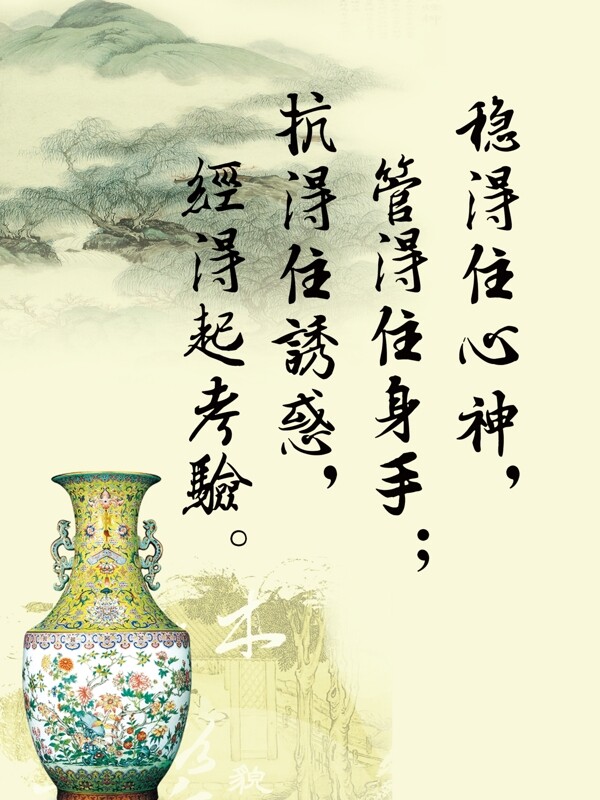 稳得住心神，
管得住身手；
抗得住誘惑，
經得起考驗。
木
貌